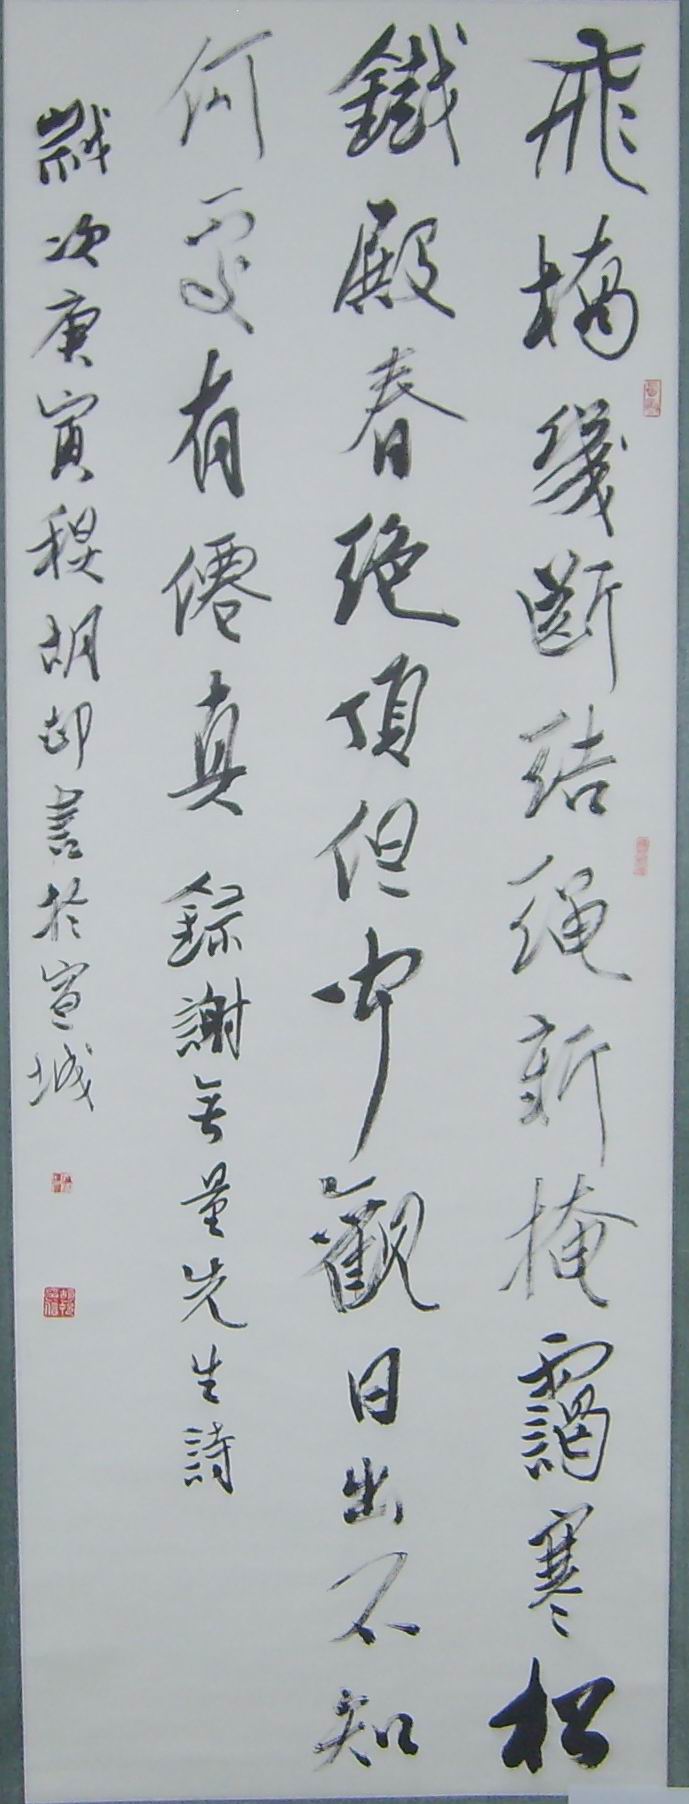 飛橋幾斷結繩新掩靄寒松
鐵殿春絕頂但聞觀日出不知
何處有僊真 錄謝無量先生詩
歲次庚寅胡邨書於宣城